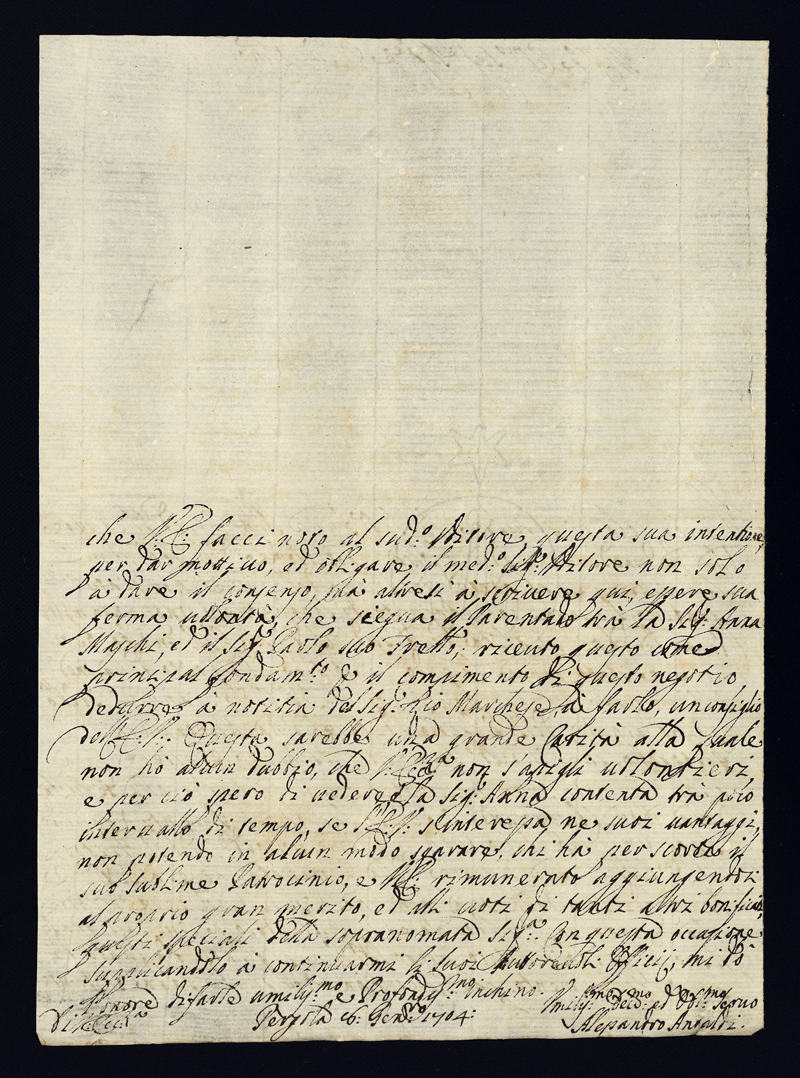 che V.E. facci noto al sud.º Uditore questa sua intentione
per dar mottivo, ed obligare il med.º Sig.r Uditore non solo
à dare il consenso, mà altresì à scrivere qui, essere sua
ferma volontà, che siegua il Parentado trà la Sig.ra Anna
Maschi, ed il Sig.r Paolo suo; riceuto questo come
principal fondam.to è il compimento di questo negotio
dedurre à notitia del Sig.r Zio Marchese, à farlo, un consiglio
dell'E.V. Questa sarebbe una grande Carità alla quale
non hò alcun dubbio, che V. Ecc.za non s'apigli volontieri,
e per ciò spero di vedere la Sig.ra Anna contenta trà poco
intervallo di tempo, se l'E.V. s'interessa ne suoi vantaggi,
non potendo in alcun modo sgarare, chi hà per scorta il
suo sublime Patrocinio, e V.E. rimunerato aggiungendosi
al proprio gran merito, ed alli voti di tanti altri
questi speciali della sopranomata Sig.ra Con questa occasione
supplicandola à continuarmi li suoi Autorevoli Officii, mi dò
l'honore di farle umiliss.mo e Profondiss.mo inchino.
Di V. Ecc.za
Pergola 16: Genn.ro 1704:
Umiliss.mo Dev.mo ed Oss.mo Servo
Alessandro Ansaldi.